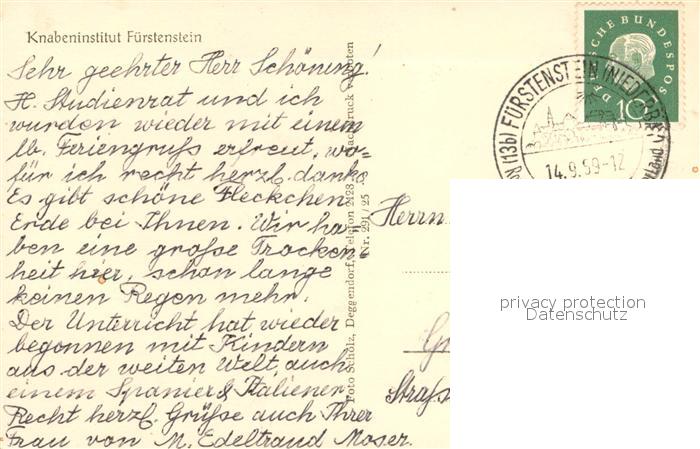 Knabeninstitut Fürstenstein
Sehr geehrter Herr Schöning!
H. Studienrat und ich
wurden wieder mit einem
lb. Feriengruß erfreut, wo=
für ich recht herzl. danke.
Es gibt schöne Fleckchen
Erde bei Ihnen. Wir ha=
ben eine große Trocken=
heit hier, schon lange
keinen Regen mehr.
Der Unterricht hat wieder
begonnen mit Kindern
aus der weiten Welt, auch
einem Spanier & Italiener
Recht herzl. Grüße auch Ihrer
Frau von M. Edeltraud Moser.
Foto Scholz, Deggendorf, Telefon 2428 Nachdruck verboten
Nr. 291/25
DEUTSCHE BUNDESPOST
10
(13b) FÜRSTENSTEIN (NIEDERBAY)
14.9.59-12
Herrn
Straß
privacy protection
Datenschutz